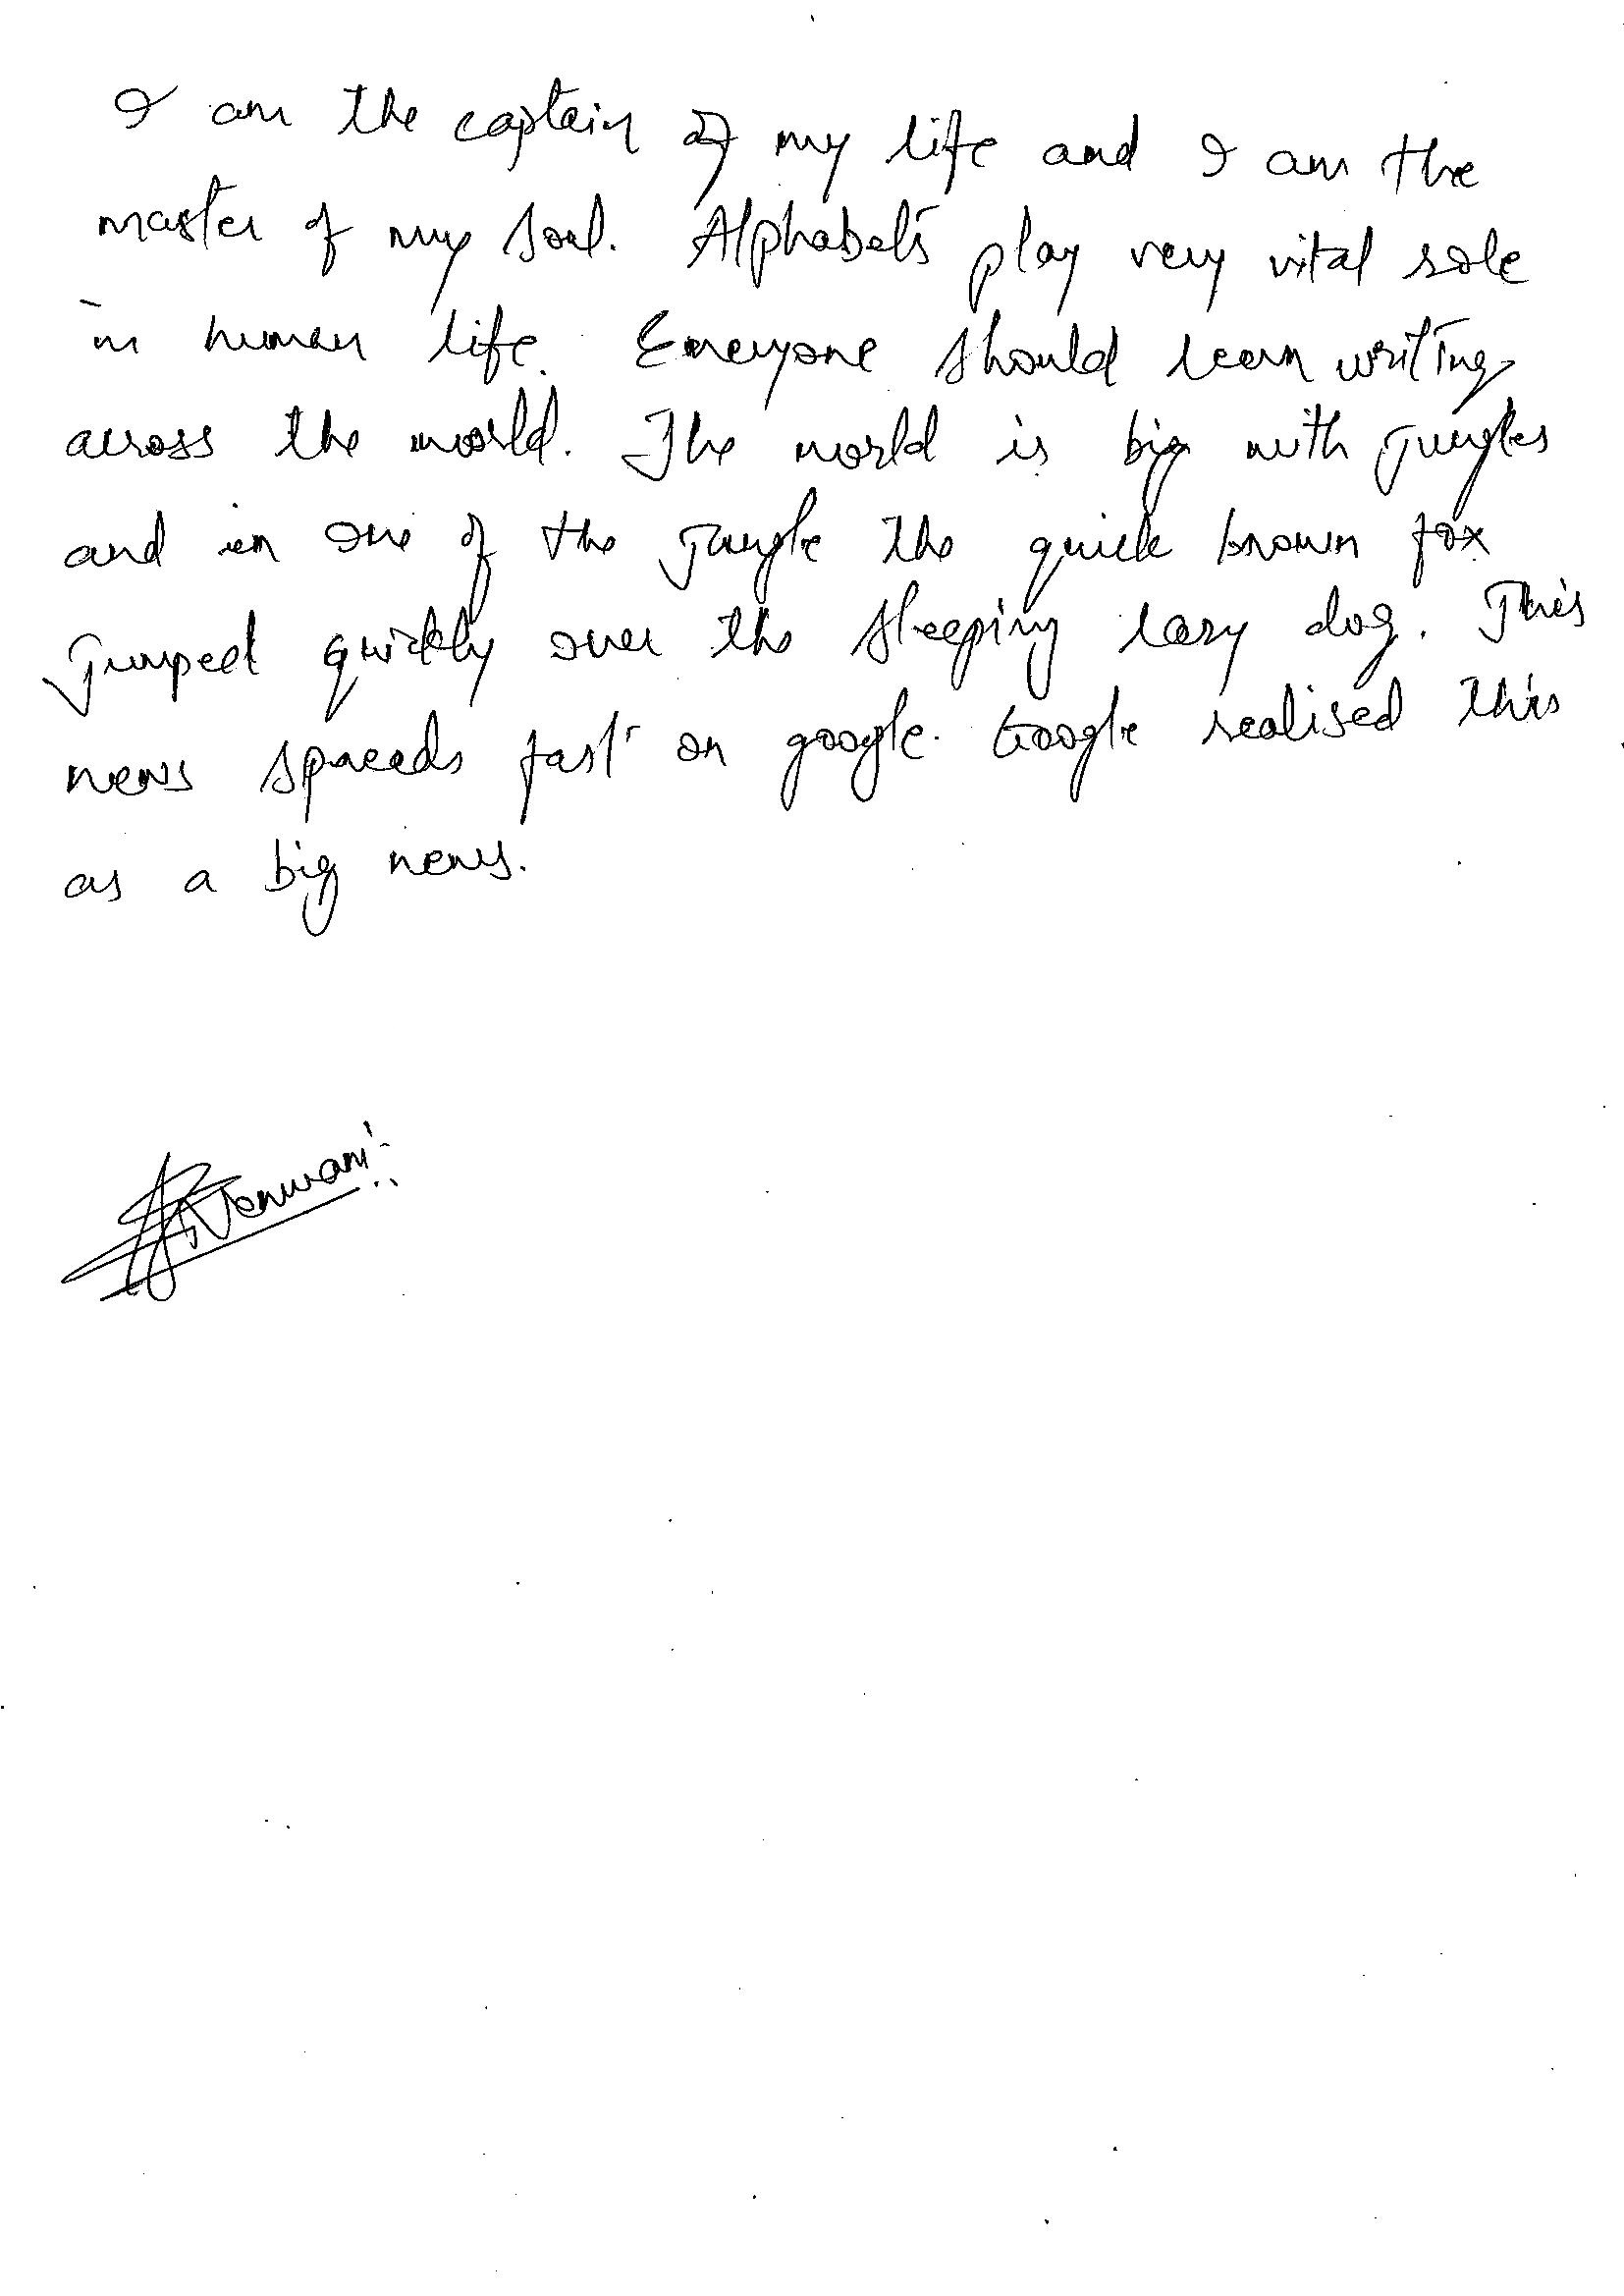 I am the captain of my life and I am the
master of my soul. Alphabets play very vital role
in human life. Everyone should learn writing
across the world. The world is big with jungles
and in one of the jungle the quick brown fox
jumped quickly over the sleeping lazy dog. This
news spreads fast on google. Google realised this
as a big news.